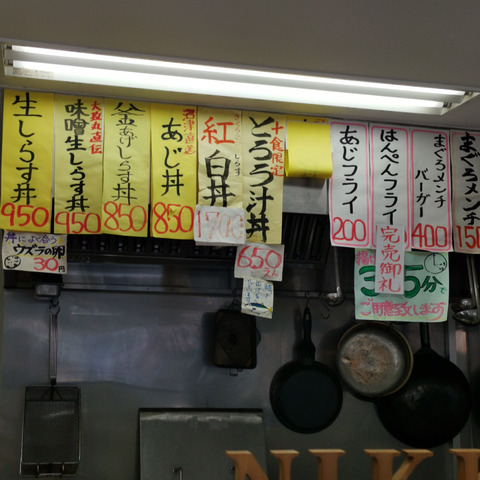 生しらす丼
950
大政丸直伝
味噌生しらす丼
950
釜あげしらす丼
850
沼津直送
あじ丼
850
紅白丼
しらす
1700
十食限定
とろろ汁丼
650
えん
あじフライ
200
はんぺんフライ
完売御礼
まぐろメンチ
バーガー
400
まぐろメンチ
150
丼によく合う
ウズラの卵
30円
揚げ
3.5分で
ご用意致します
NIK